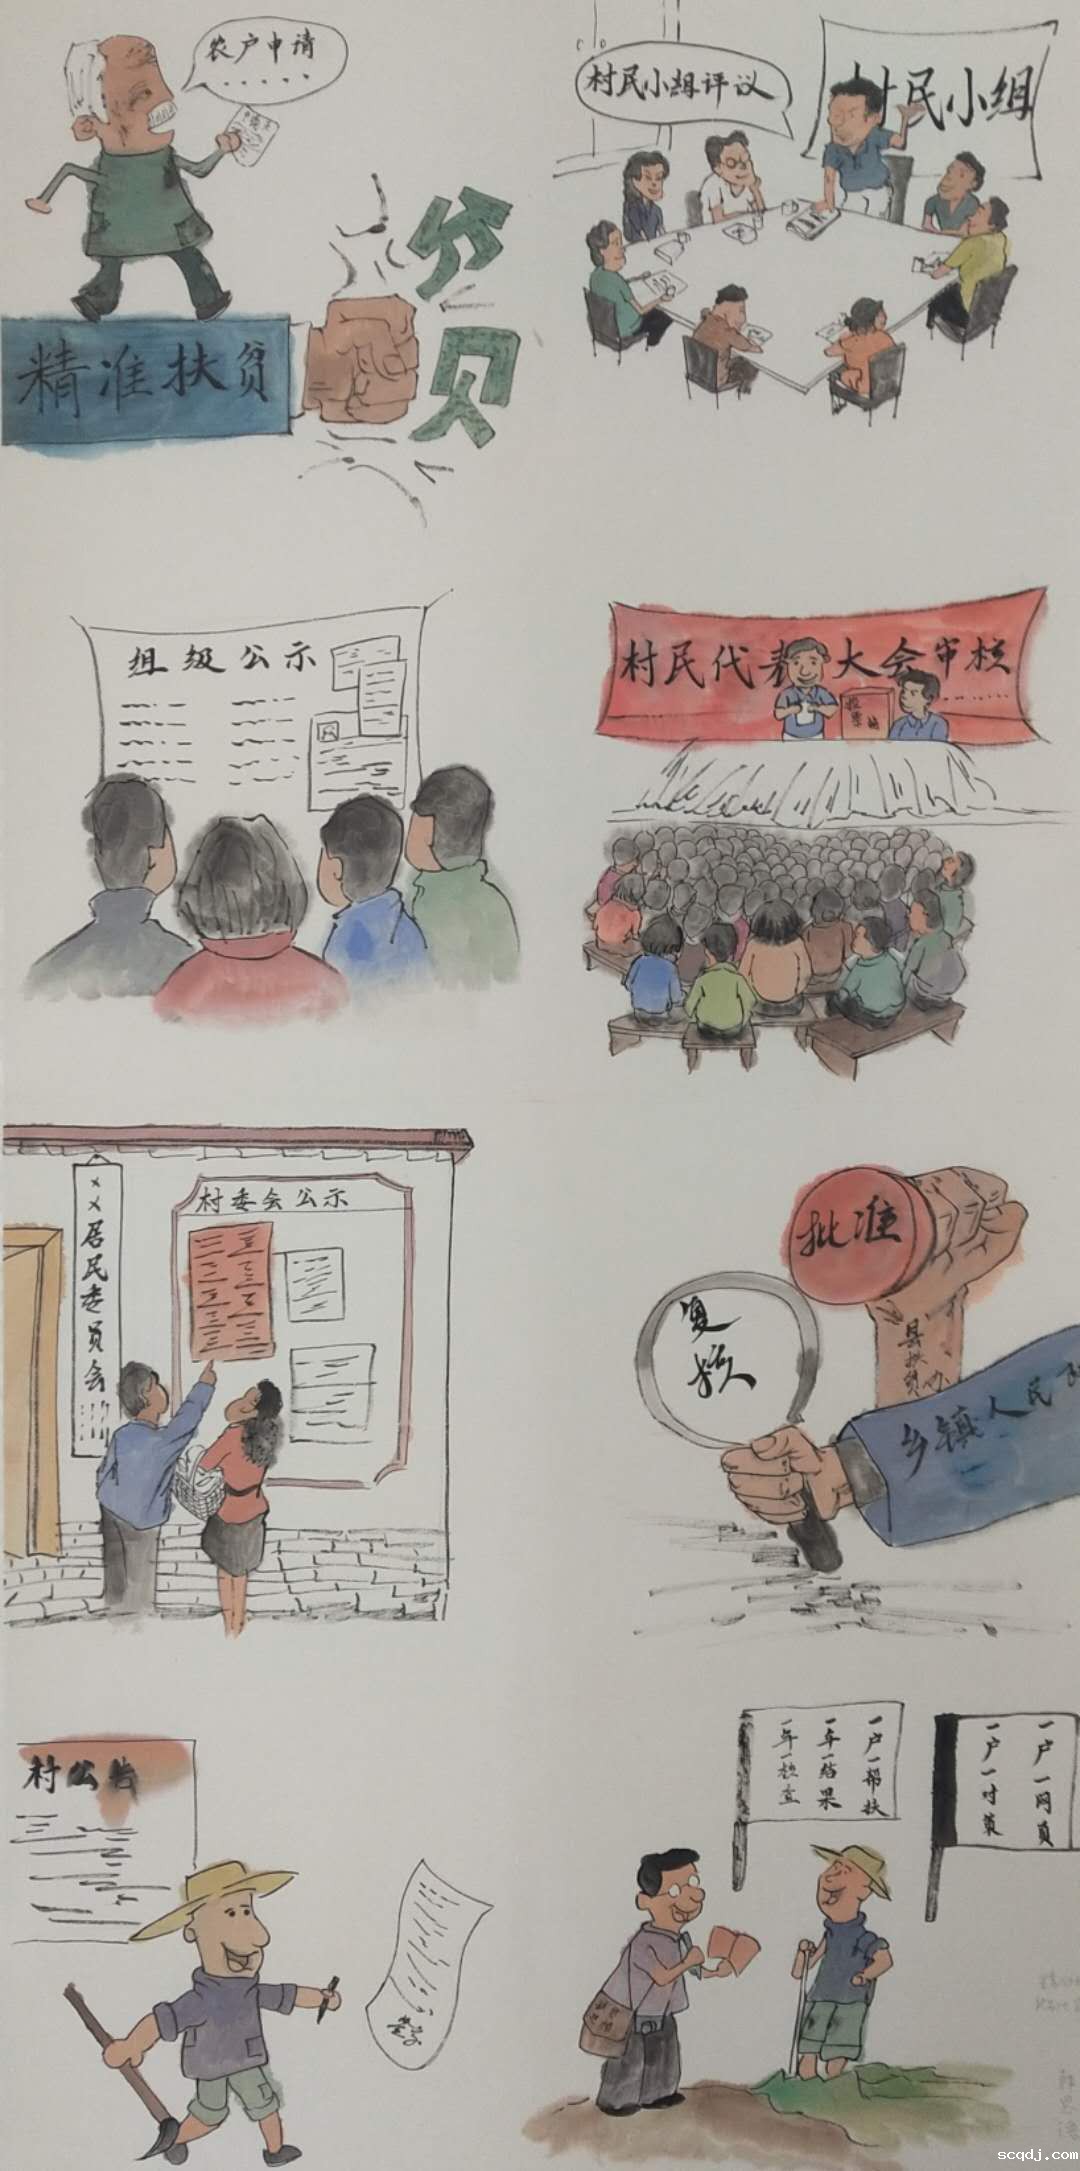 农户申请
.....
精准扶贫
贫
村民小组评议
村民小组
组级公示
村民代表大会审核
投票箱
村委会公示
××居民委员会
批准
复核
县扶贫办
乡镇人民
村公告
签字
一户一帮扶
一年一结果
一年一核查
一户一网页
一户一对策
scqdj.com